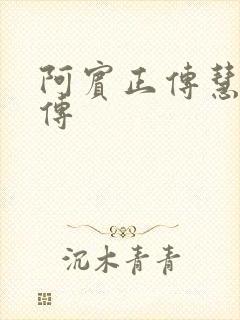 阿賓正傳慧
傳
沉木青青